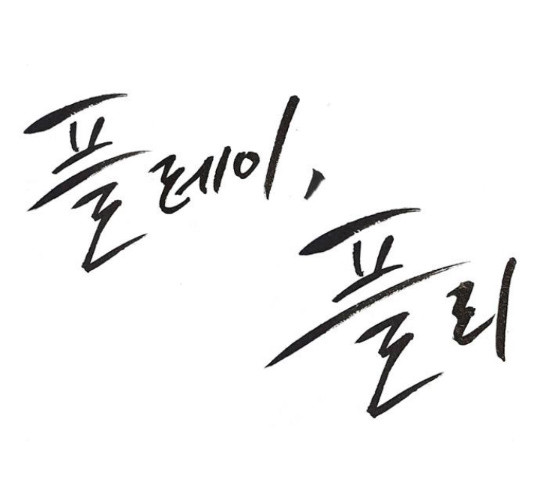 플레이,
플리